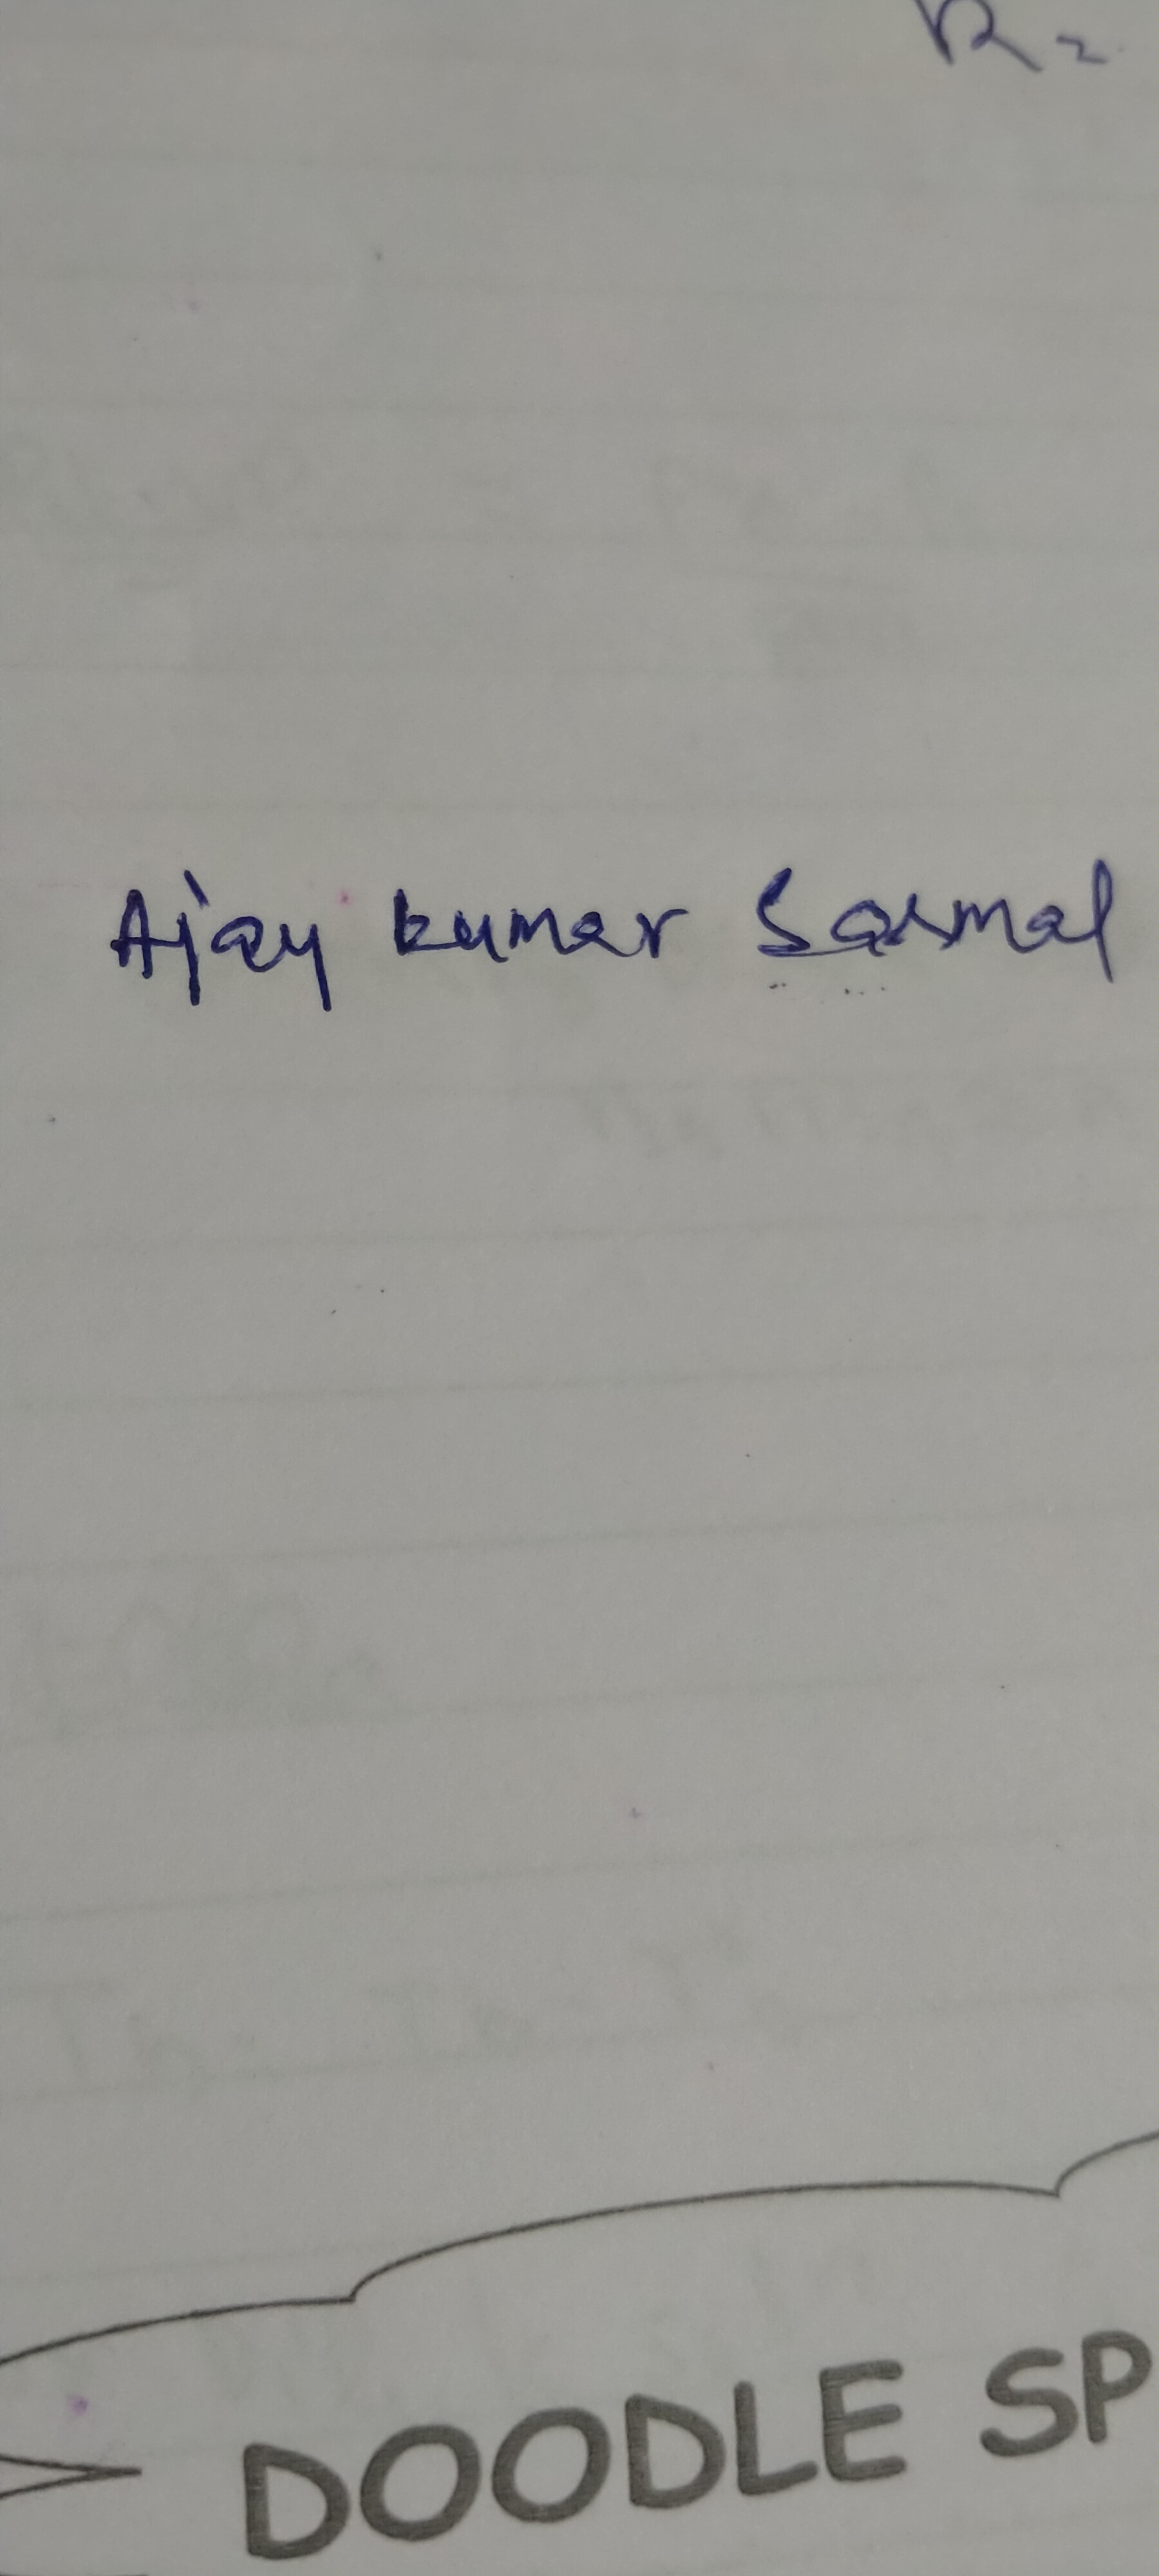 R =
Ajay kumar Sasmal
DOODLE SP